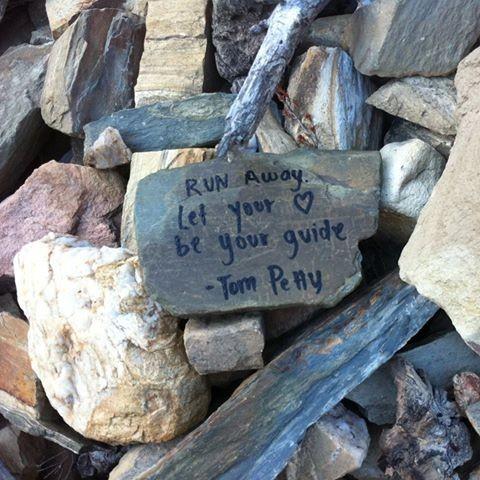 RUN Away.
Let your ♡
be your guide
- Tom Petty